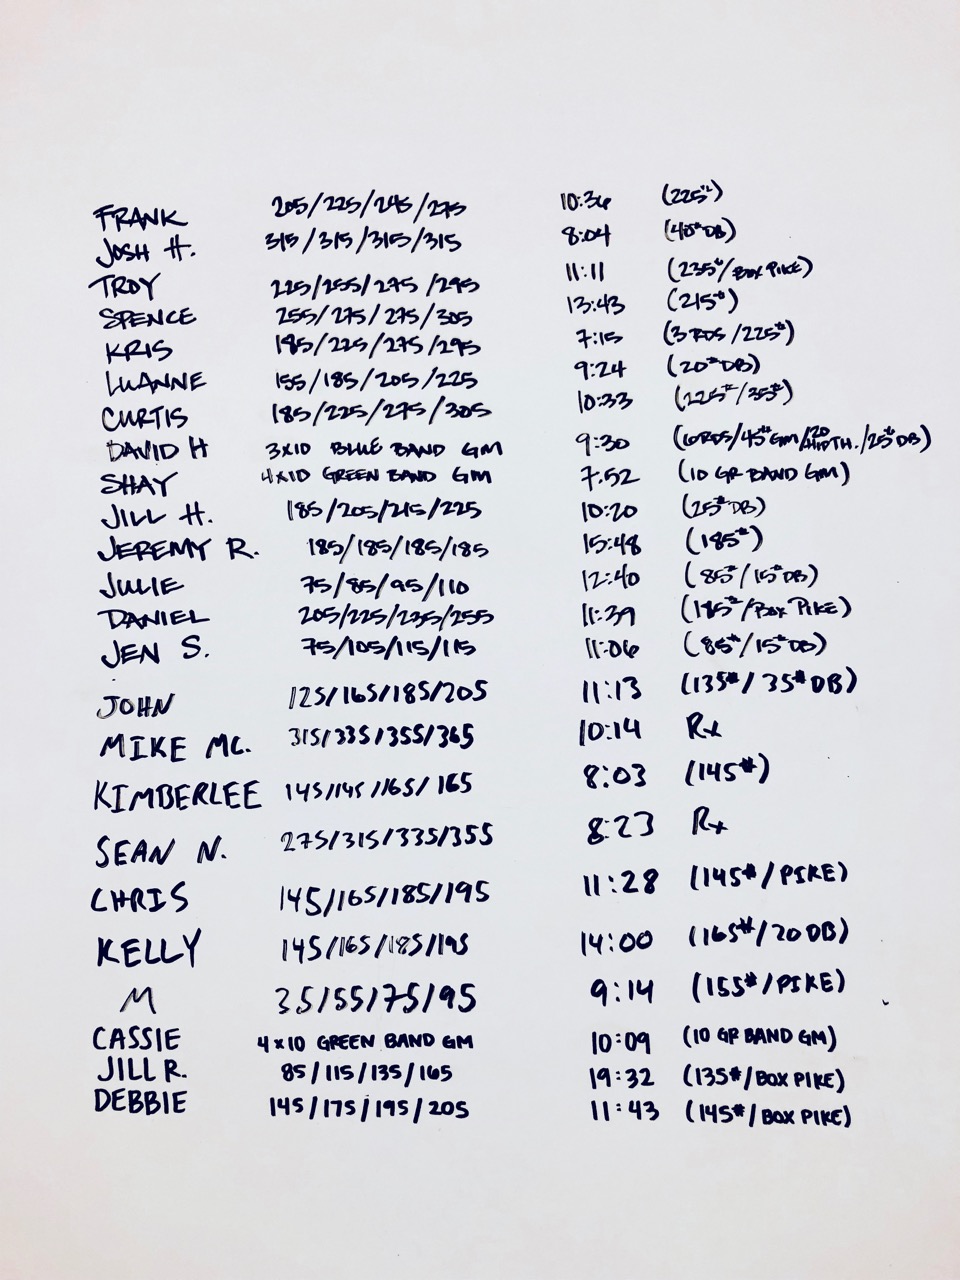 FRANK 205/225/245/275 10:36 (225#)
JOSH H. 315/315/315/315 8:04 (40# DB)
TROY 225/255/275/295 11:11 (235#/BOX PIKE)
SPENCE 255/275/275/305 13:43 (215#)
KRIS 185/225/275/295 7:15 (3 RDS/225#)
LUANNE 155/185/205/225 9:24 (20# DB)
CURTIS 185/225/275/305 10:33 (225#/35#)
DAVID H 3x10 BLUE BAND GM 9:30 (6RDS/45# GM/20 /25# DB)
SHAY 4x10 GREEN BAND GM 7:52 (10 GR BAND GM)
JILL H. 185/205/215/225 10:20 (25# DB)
JEREMY R. 185/185/185/185 15:48 (185#)
JULIE 75/85/95/110 12:40 (85#/15# DB)
DANIEL 205/225/235/255 11:39 (185#/BOX PIKE)
JEN S. 75/105/115/115 11:06 (85#/15# DB)
JOHN 125/165/185/205 11:13 (135#/35# DB)
MIKE MC. 315/335/355/365 10:14 Rx
KIMBERLEE 145/145/165/165 8:03 (145#)
SEAN N. 275/315/335/355 8:23 Rx
CHRIS 145/165/185/195 11:28 (145#/PIKE)
KELLY 145/165/185/195 14:00 (165#/20 DB)
M 35/55/75/95 9:14 (155#/PIKE)
CASSIE 4x10 GREEN BAND GM 10:09 (10 GR BAND GM)
JILL R. 85/115/135/165 19:32 (135#/BOX PIKE)
DEBBIE 145/175/195/205 11:43 (145#/BOX PIKE)